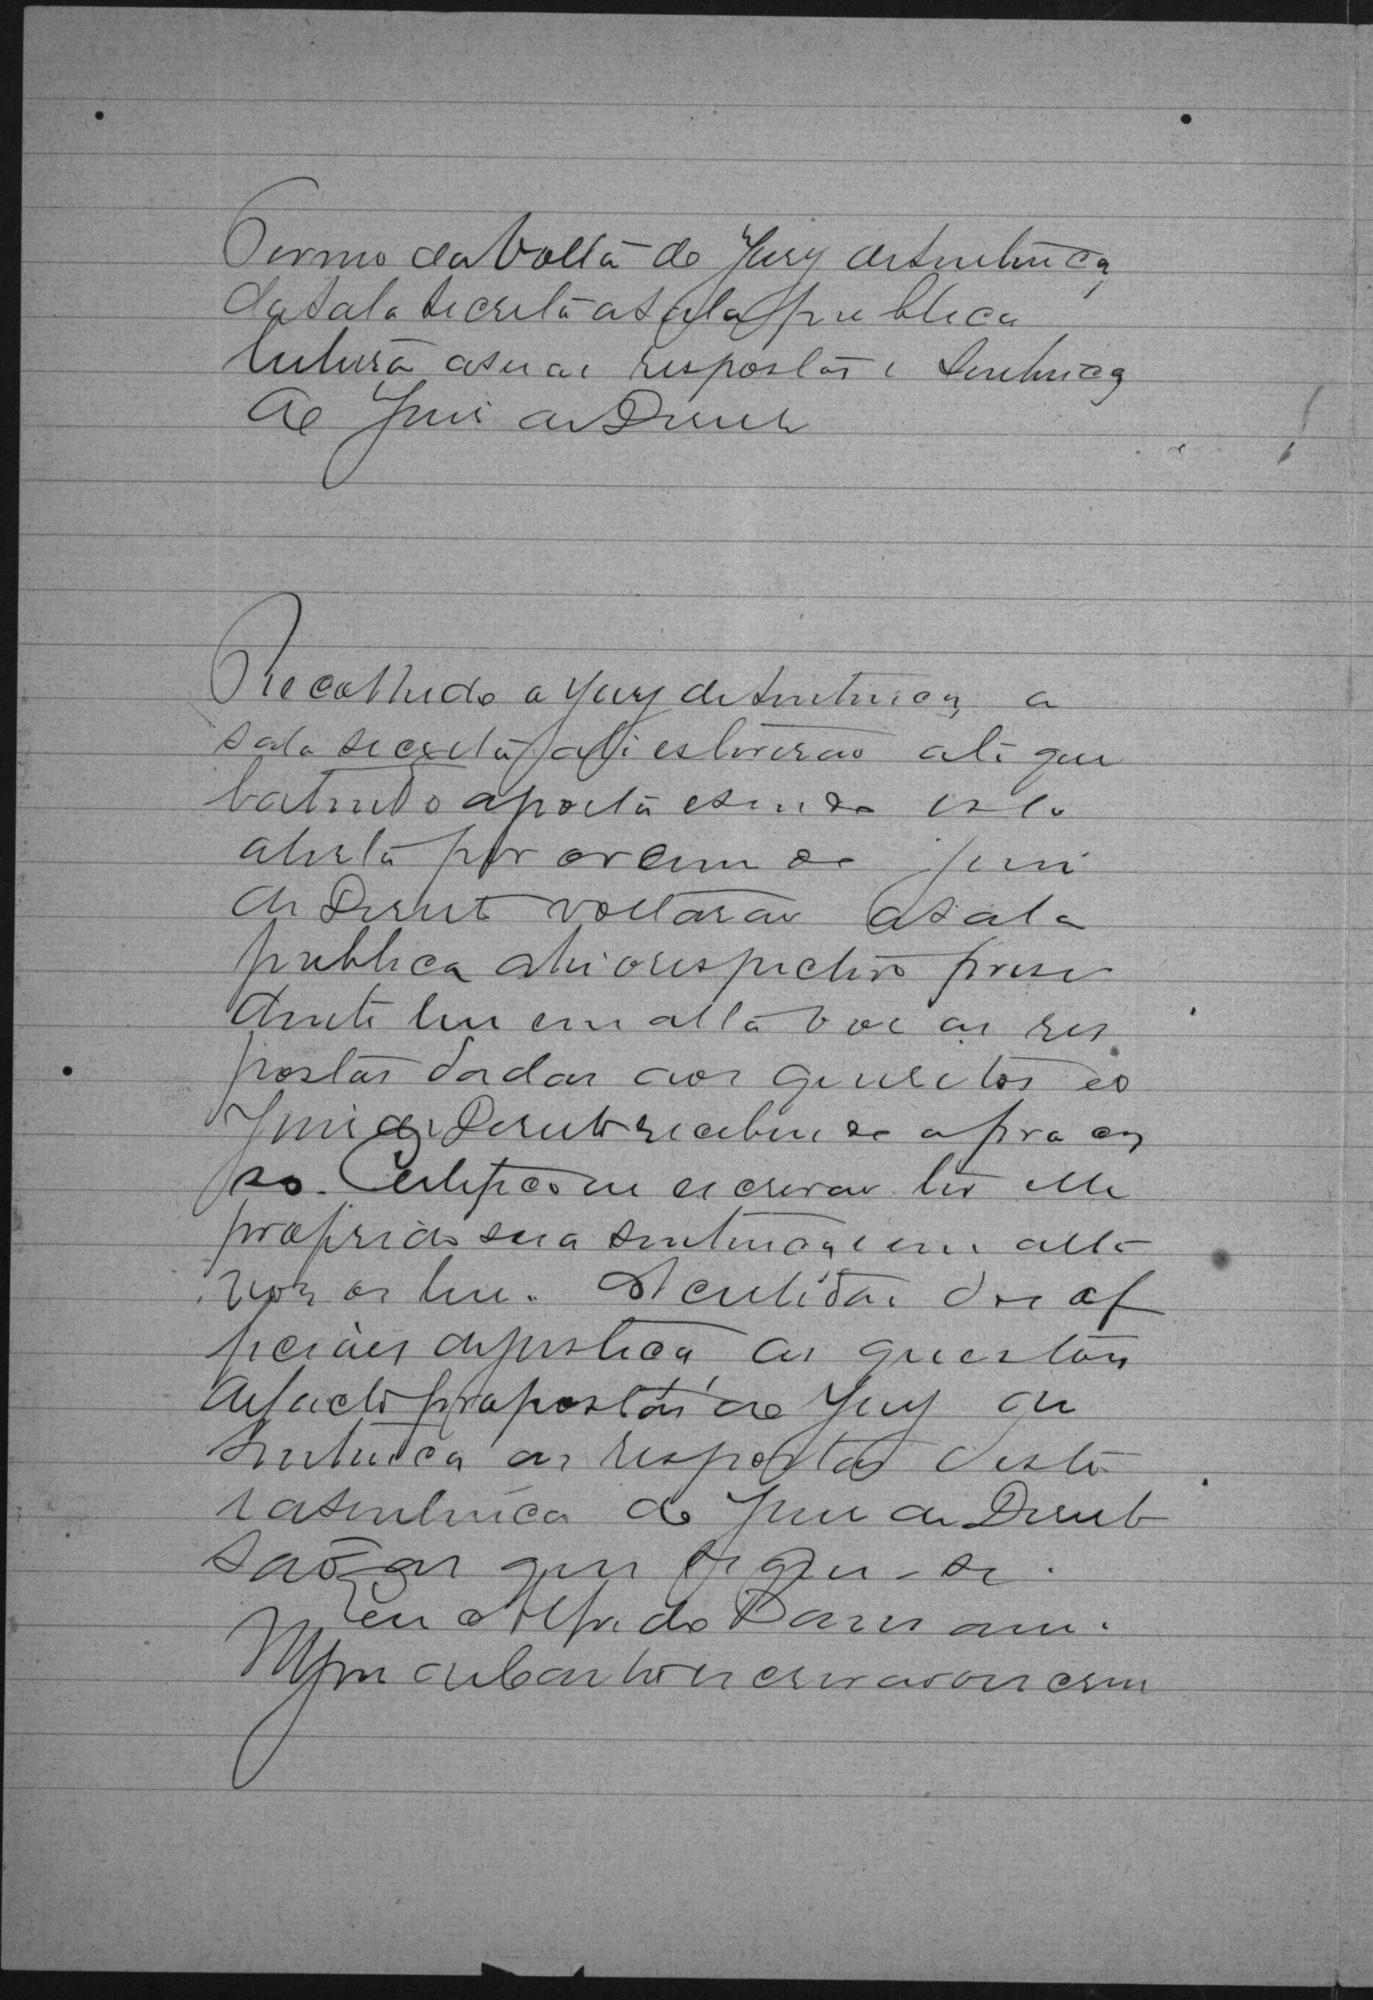 Termo da Volta do Jury de Sentença
da sala secreta a sala publica
leitura a suas respostas e sentença
do Juis de Direito
Recolhido o Jury de Sentença a
sala secreta ahi estiverão até que
batendo a porta e sendo esta
aberta por ordem do Juis
de Direito voltarão a sala
publica ahi o respectivo presi
dente leu em alta voz as res
postas dadas aos quesitos e o
Juis de Direito recebendo o proces
so. com escrivão elle
proprio sua sentença e em alta
voz as leu. A certidão dos of
ficiaes de justiça as questões
de facto propostas ao Jury de
Sentença as respostas deste
e a sentença do Juis de Direito
são as que segue-se.
Eu Alfredo
escrivão o escrevi